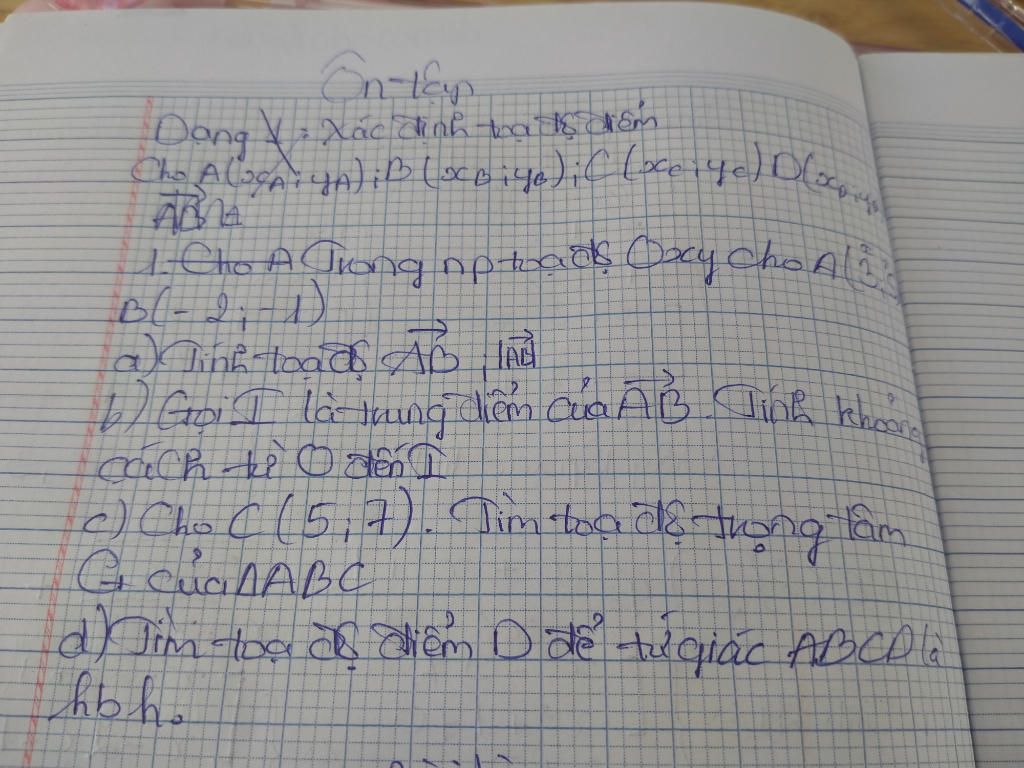 Ôn tập
Dạng V: Xác định toạ độ điểm
Cho A(xA; yA); B(xB; yB); C(xC; yC) D(xD; yD)
AB
1. Cho A Trong mp toạ độ Oxy cho A(3;
B(-2; -1)
a) Tính toạ độ AB, |AB|
b) Gọi I là trung điểm của AB. Tính khoảng
cách từ O đến I
c) Cho C(5; 7). Tìm toạ độ trọng tâm
G của ΔABC
d) Tìm toạ độ điểm D để tứ giác ABCD là
hbh.